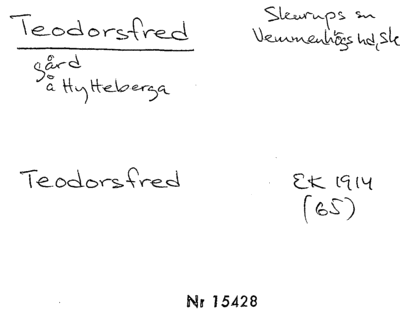 Teodorsfred
Skurups sn
Vemmenhögs hd, Sk
gård
å Hylteberga
Teodorsfred
EK 1914
(65)
Nr 15428